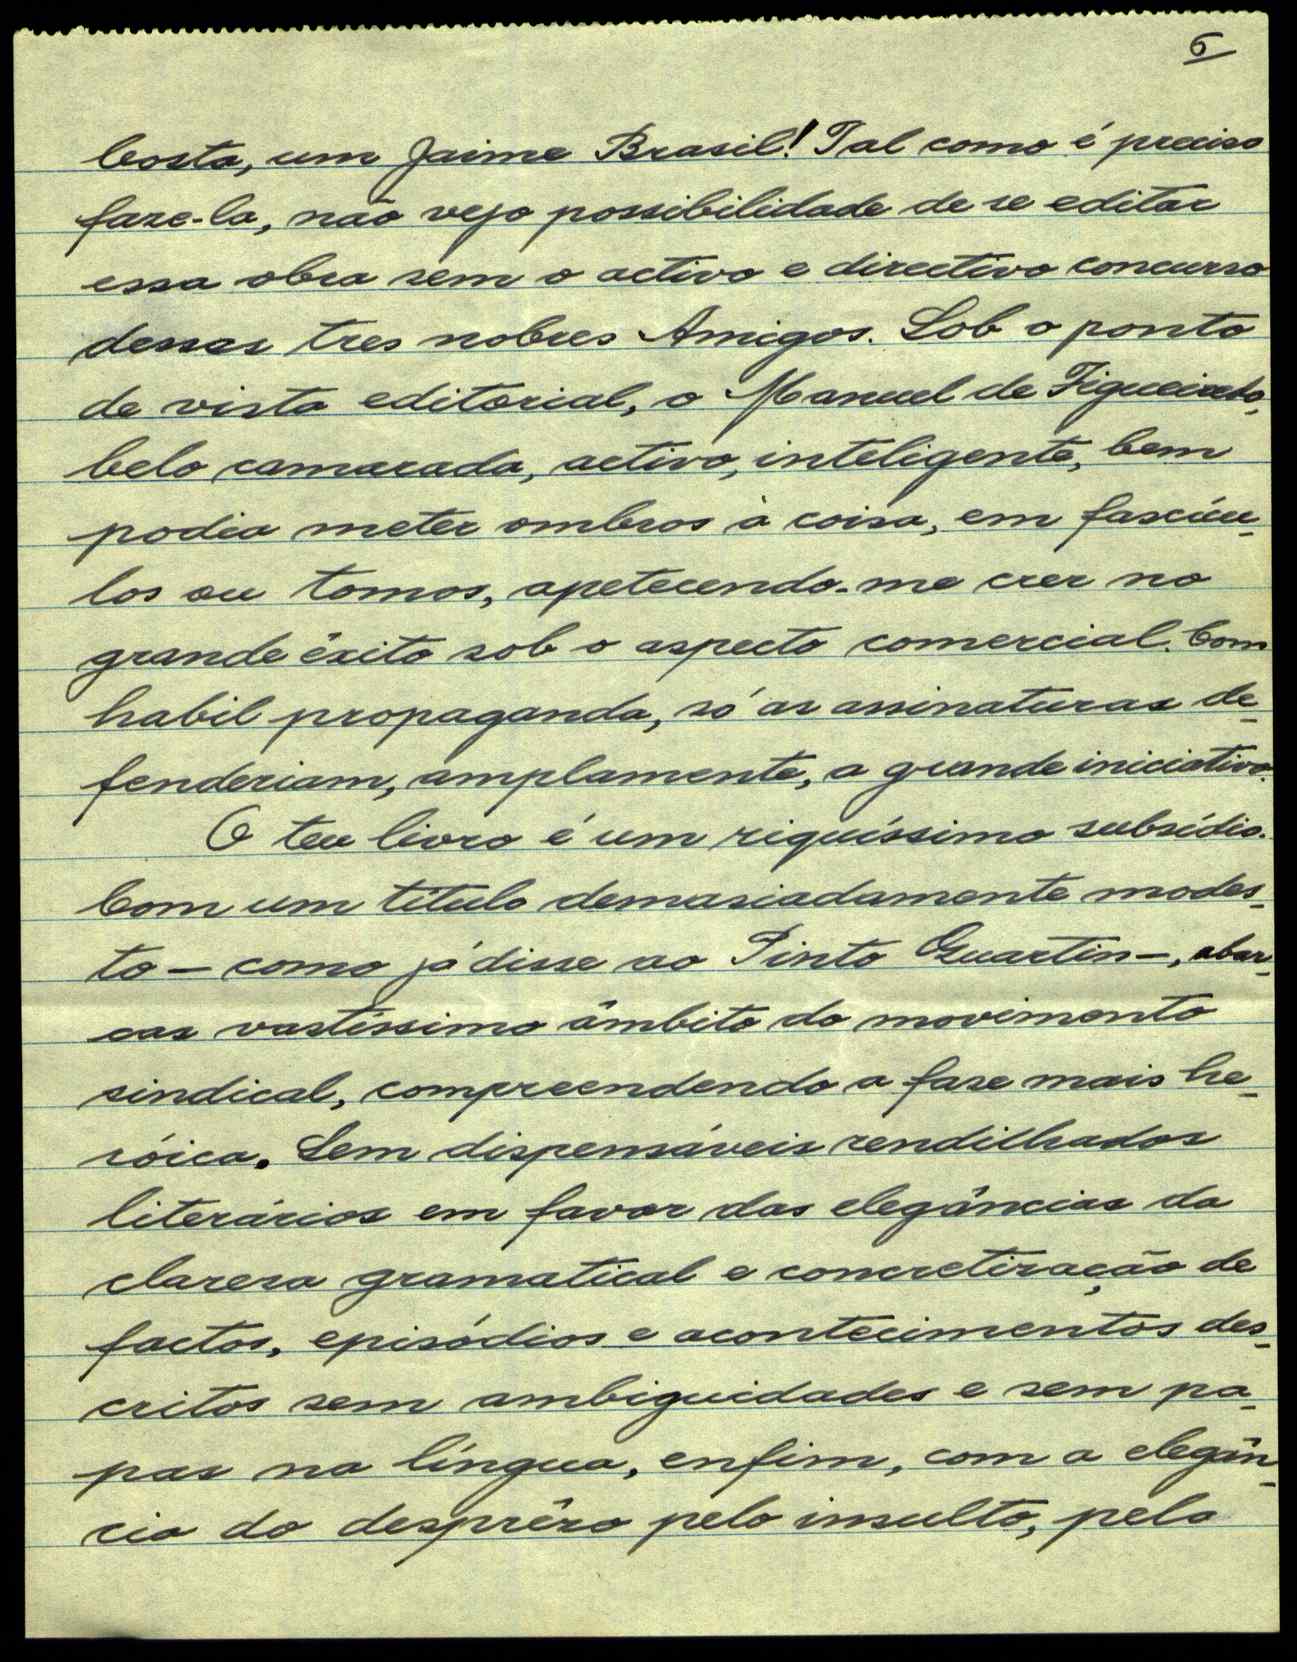 6
Costa, um Jaime Brasil! Tal como é preciso
faze-la, não vejo possibilidade de se editar
essa obra sem o activo e directivo concurso
desses tres nobres Amigos. Sob o ponto
de vista editorial, o Manuel de Figueiredo,
belo camarada, activo, inteligente, bem
podia meter ombros à coisa, em fascícu-
los ou tomos, apetecendo-me crer no
grande êxito sob o aspecto comercial. Com
habil propaganda, só as assinaturas de-
fenderiam, amplamente, a grande iniciativa.
O teu livro é um riquíssimo subsídio.
Com um título demasiadamente modes-
to — como já disse ao Pinto Quartin —, abar-
cas vastíssimo âmbito do movimento
sindical, compreendendo a fase mais he-
róica. Sem dispensáveis rendilhados
literários em favor das elegâncias da
clareza gramatical e concretização de
factos, episódios e acontecimentos des-
critos sem ambiguidades e sem pa-
pas na língua, enfim, com a elegân-
cia do desprêzo pelo insulto, pela